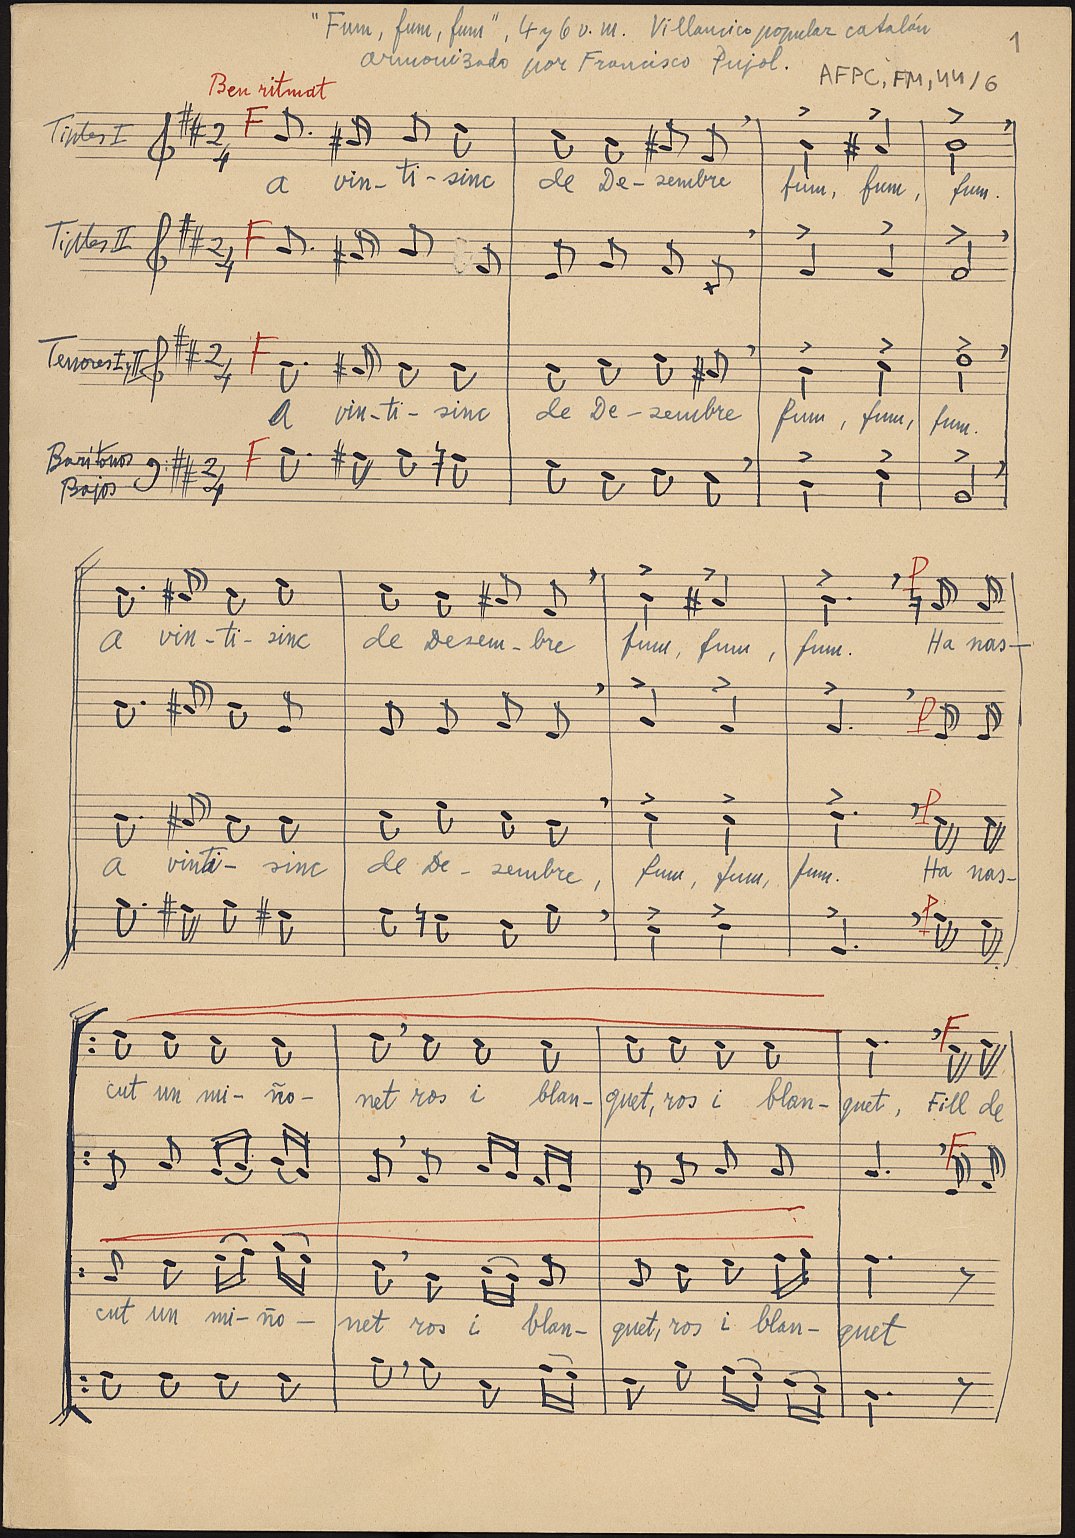 "Fum, fum, fum", 4 y 6 v. m. Villancico popular catalán
armonizado por Francisco Pujol.
1
AFPC, FM, 44/6
Ben ritmat
Tiples I 2/4 F
a vin-ti-sinc de De-sembre fum, fum, fum.
Tiples II 2/4 F
Tenores I y II 2/4 F
A vin-ti-sinc de De-sembre fum, fum, fum.
Barítonos
Bajos 2/4 F
P
A vin-ti-sinc de Desem-bre fum, fum, fum. Ha nas-
P
P
A vinti-sinc de De-sembre, fum, fum, fum. Ha nas-
P
F
cut un mi-ño-net ros i blan-quet, ros i blan-quet, Fill de
F
cut un mi-ño-net ros i blan-quet, ros i blan-quet